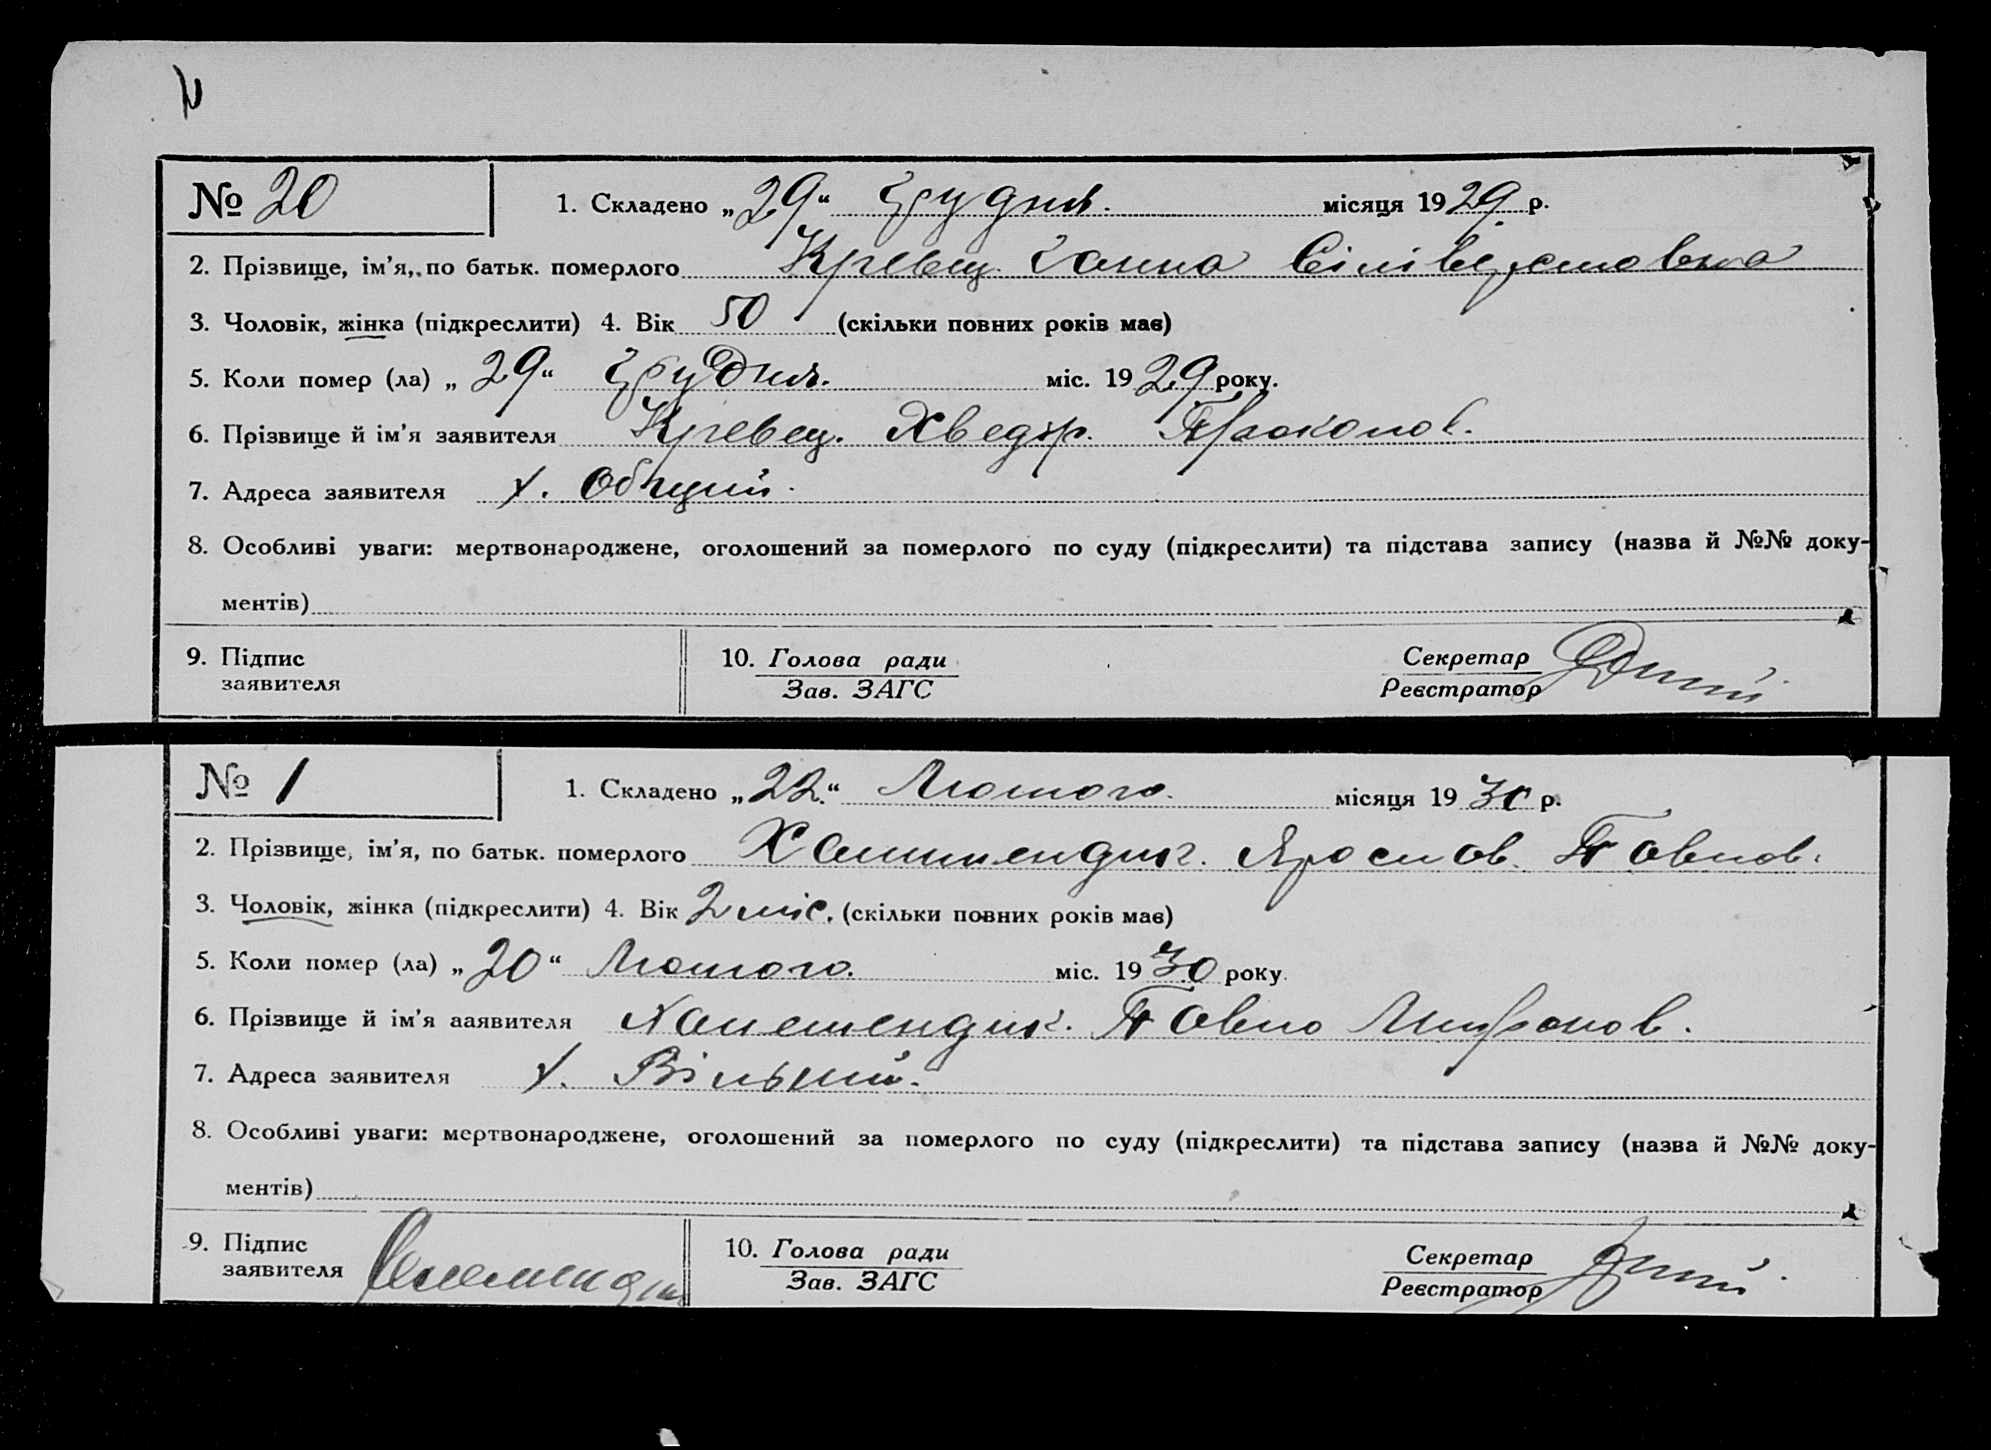 № 20 1. Складено „29“ Грудня. місяця 1929 р.
2. Прізвище, ім’я, по батьк. померлого Кревец Ганна Сілівестовна
3. Чоловік, жінка (підкреслити) 4. Вік 50 (скільки повних років має)
5. Коли помер (ла) „29“ Грудня. міс. 1929 року.
6. Прізвище й ім’я заявителя Кревец. Хведір. Прокопов.
7. Адреса заявителя х. Общий.
8. Особливі уваги: мертвонароджене, оголошений за померлого по суду (підкреслити) та підстава запису (назва й №№ доку-
ментів)
9. Підпис 10. Голова ради Секретар
заявителя Зав. ЗАГС Реєстратор
№ 1 1. Складено „22“ Лютого. місяця 1930 р.
2. Прізвище, ім’я, по батьк. померлого Яросл ов. Павлов.
3. Чоловік, жінка (підкреслити) 4. Вік 2 міс. (скільки повних років має)
5. Коли помер (ла) „20“ Лютого. міс. 1930 року.
6. Прізвище й ім’я ааявителя Павло Миронов.
7. Адреса заявителя х. Вільний.
8. Особливі уваги: мертвонароджене, оголошений за померлого по суду (підкреслити) та підстава запису (назва й №№ доку-
ментів)
9. Підпис 10. Голова ради Секретар
заявителя Зав. ЗАГС Реєстратор